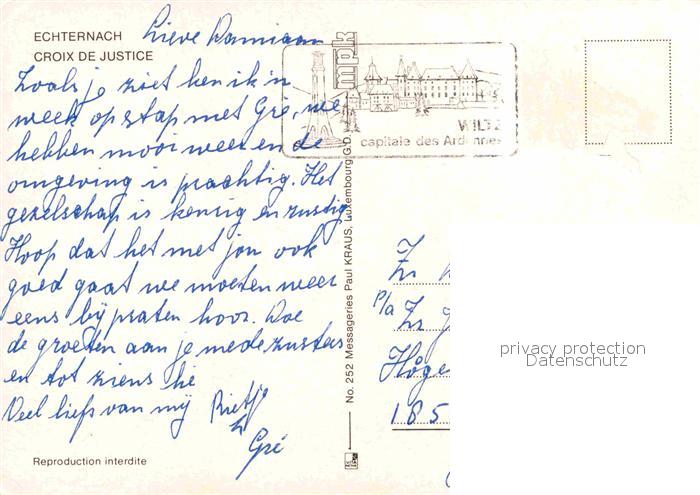 ECHTERNACH
CROIX DE JUSTICE
Lieve Damiaan
Zoals je ziet ben ik 'n
week op stap met Gré, we
hebben mooi weer en de
omgeving is prachtig. Het
gezelschap is keurig en rustig
Hoop dat het met jou ook
goed gaat we moeten weer
eens bijpraten hoor. Doe
de groeten aan je medezusters
en tot ziens hè
Veel liefs van mij Rietje
Gré
Reproduction interdite
mpk
WILTZ
capitale des Ardennes
No. 252 Messageries Paul KRAUS, Luxembourg G.D.
Zr
P/a Zr
Höge
185
privacy protection
Datenschutz